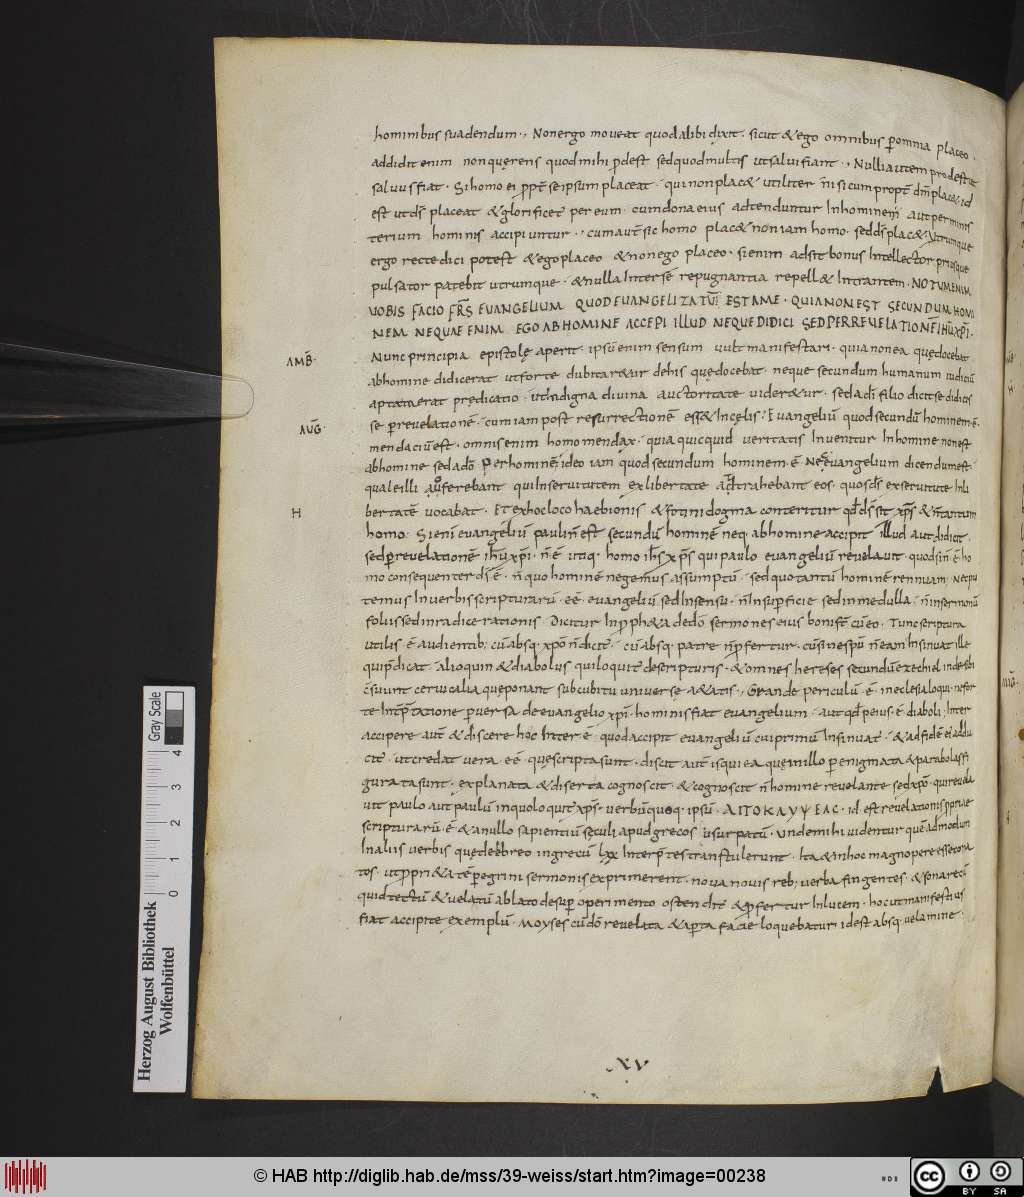 hominibus suadendum ·, Non ergo moveat quod alibi dixit · sicut & ego omnibus p̄ omnia placeo ·
addidit enim non querens quod mihi p̄dest sed quod multis ut salvi fiant ·, Nulli autem prodest ut
salvus fiat · Si homo ei ppt̄ seipsum placeat · qui non plac& utiliter nisi cum propt̄ dm̄ plac& · id
est ut ds̄ placeat & glorificet per eum · cum dona eius adtenduntur In homine aut per minis
terium hominis accipiuntur ·, cum aut̄ sic homo plac& non iam homo · sed ds̄ plac& · utrumque
ergo recte dici potest & ego placeo & non ego placeo · si enim adsit bonus Intellector piusque
pulsator patebit utrumque · & nulla Inter se repugnantia repell& Intrantem · NOTUM ENIM
VOBIS FACIO FRS̄ EVANGELIUM QUOD EVANGELIZATŪ EST A ME · QUIA NON EST SECUNDUM HOMI
NEM NEQUAE ENIM EGO AB HOMINE ACCEPI ILLUD NEQUE DIDICI SED PER REVELATIONĒ IHU XPI ·
AMB̄ ·
Nunc principia epistolę aperit · ipsū enim sensum vult manifestari · quia non ea quę docebat
ab homine didicerat ut forte dubitar&ur de his quę docebat · neque secundum humanum iudiciū
aptata erat predicatio · ut Indigna divina auctoritate vider&ur · sed a di filio dicit se didicis
AUG ·
se p̄ revelationē · cum iam post resurrectionē ess& In cęlis · Evangeliū quod secundū hominem · ē ·
mendaciū est · omnis enim homo mendax · quia quicquid veritatis Invenitur In homine non est
ab homine sed a dō Per hominē ideo iam quod secundum hominem · ē Nec evangelium dicendum est ·
quale illi auferebant qui In servitutem ex libertate adtrahebant eos · quos ds̄ ex servitute In li
H
bertatē vocabat · Et ex hoc loco haebionis & fotini dogma conteritur qd ds̄ sit xps̄ & n̄ tantum
homo · Si eni evangeliū pauli n̄ est secundū hominē neq · ab homine accipit illud aut didicit ·
sed p̄ revelationē ihū xpi · n̄ ē utiq · homo ihs̄ xps̄ qui paulo evangeliū revelavit · quod si n̄ · ē ho
mo consequenter ds̄ · ē · n̄ quo hominē negemus assumptū · sed quo tantū hominē rennuam · Nec pu
temus In verbis scripturarū · ēē · evangeliū sed In sensu · n̄ In sup̄ficie sed in medulla · n̄ in sermonū
foliis sed in radice rationis Dicitur In pph&a de dō sermones eius boni st̄ cū eo · Tunc scriptura
utilis · ē audientib; cū absq · xpō n̄ dicit̄ · cū absq · patre n̄ p̄fertur · cū sine spū n̄ eam Insinuat ille
qui p̄dicat · alioquin & diabolus qui loquit̄ de scripturis · & omnes hereses secundū ezechiel inde sibi
cōsuunt cervicalia que ponant sub cubitu universe a&atis ·, Grande periculū · ē · in eclesia loqui · ne for
te Intp̄tatione p̄versa de evangelio xpi · hominis fiat evangelium · aut qd peius · ē · diaboli; Inter
accipere aut̄ & discere hoc Inter · ē · quod accipit evangeliū cui primū Insinuat̄ · & ad fidē ei addu
cit̄ · ut credat vera · ēē · quę scripta sunt · discit aut̄ is qui ea que in illo p̄ enigmata & parabolas fi
gurata sunt · explanata & diserta cognoscit · & cognoscit n̄ homine revelante · sed xpō · qui revela
vit paulo aut paulū in quo loquit̄ xps̄ · verbū quoq · ipsū · ΑΠΟΚΑΛΥΨΕΩC · id est revelationis pprie
scripturarū · ē & a nullo sapientiū sęculi apud grecos usurpatū · unde mihi videntur quē admodum
In aliis verbis quę de ebreo in grecū lxx Interp̄tes transtulerunt · Ita & in hoc magnopere esse cona
tos · ut pprie&atē pegrini sermonis exprimerent · nova novis reb; verba fingentes & sonare cū
quid tectū & velatū ablato desup̄ operimento ostendit̄ & p̄fertur In lucem · hoc ut manifestius
fiat accipite exemplū · Moyses cū dō revelata & ap̄ta facie loquebatur · id est absq · velamine ·
XV
Herzog August Bibliothek
Wolfenbüttel
0 1 2 3 4
Gray Scale
© HAB http://diglib.hab.de/mss/39-weiss/start.htm?image=00238
cc BY SA